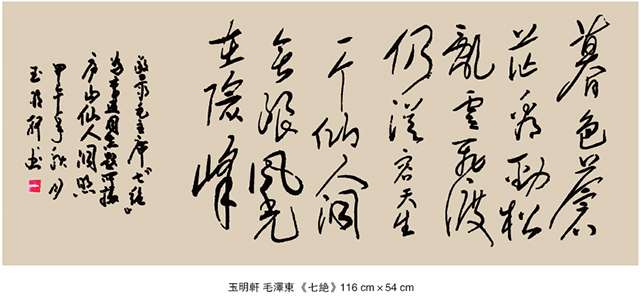 暮色蒼
茫看勁松
亂雲飛渡
仍從容天生
一个仙人洞
無限風光
在險峰
录毛主席《七绝》
为李进同志题所摄
庐山仙人洞照
甲午年秋月
玉明軒书
玉明軒 毛澤東《七絶》116 cm × 54 cm